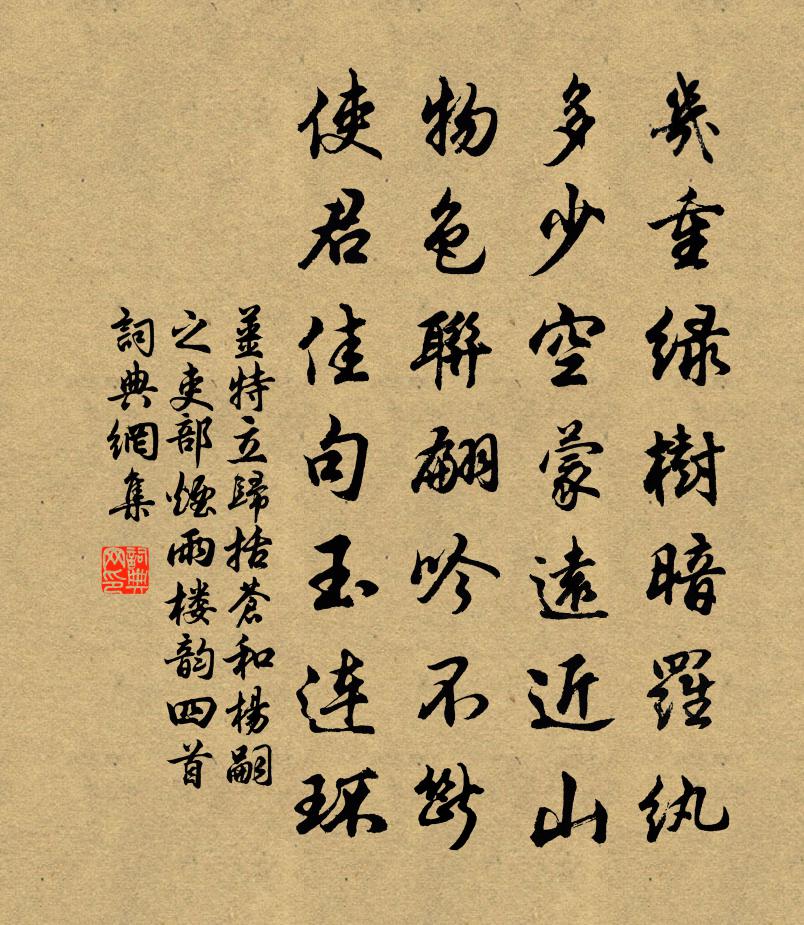 幾重緑樹暗羅紈
多少空蒙遠近山
物色聯翩吟不斷
使君佳句玉連環
姜特立歸括蒼和楊嗣
之吏部煙雨楼韵四首
詞典網集
詞典网印